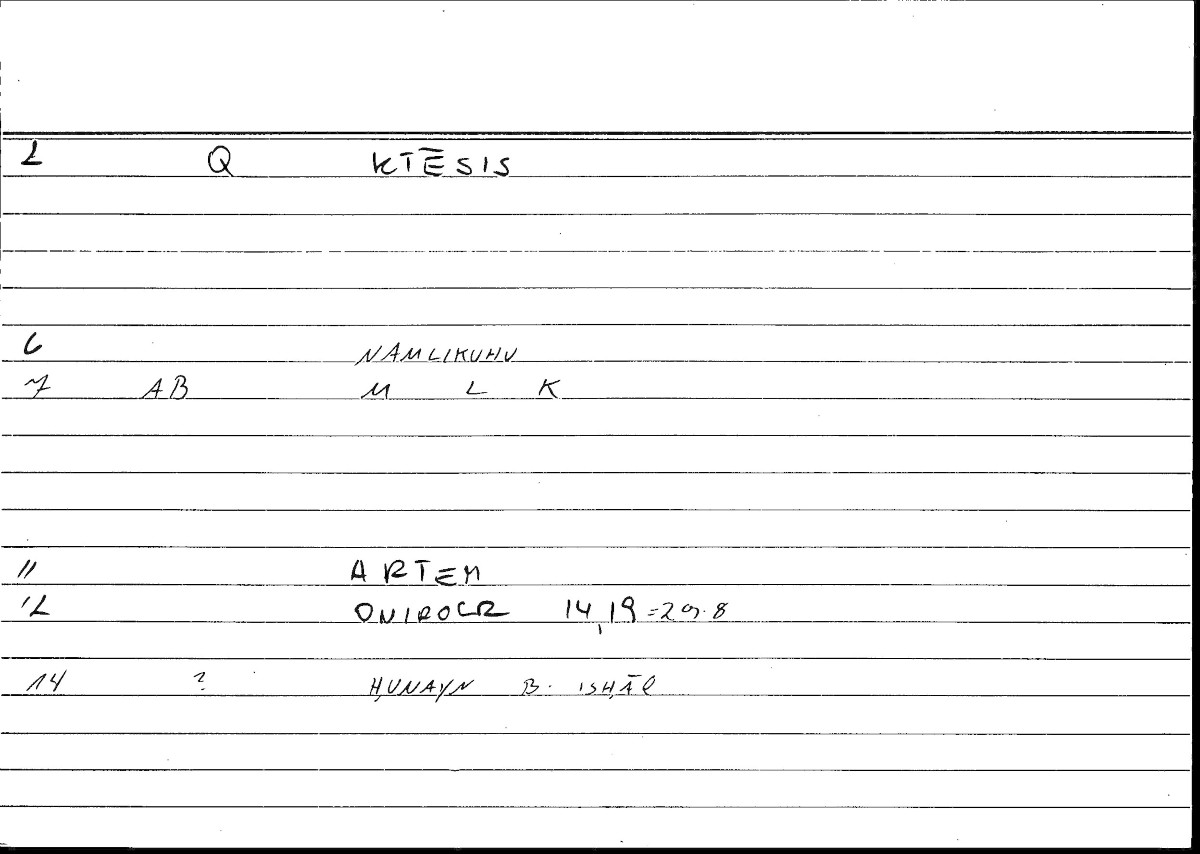 2 Q KTĒSIS
6 NAMLIKUHU
7 AB M L K
11 ARTEM
12 ONIROCR 14,19=29.8
14 ? ḤUNAYN B. ISḤĀQ